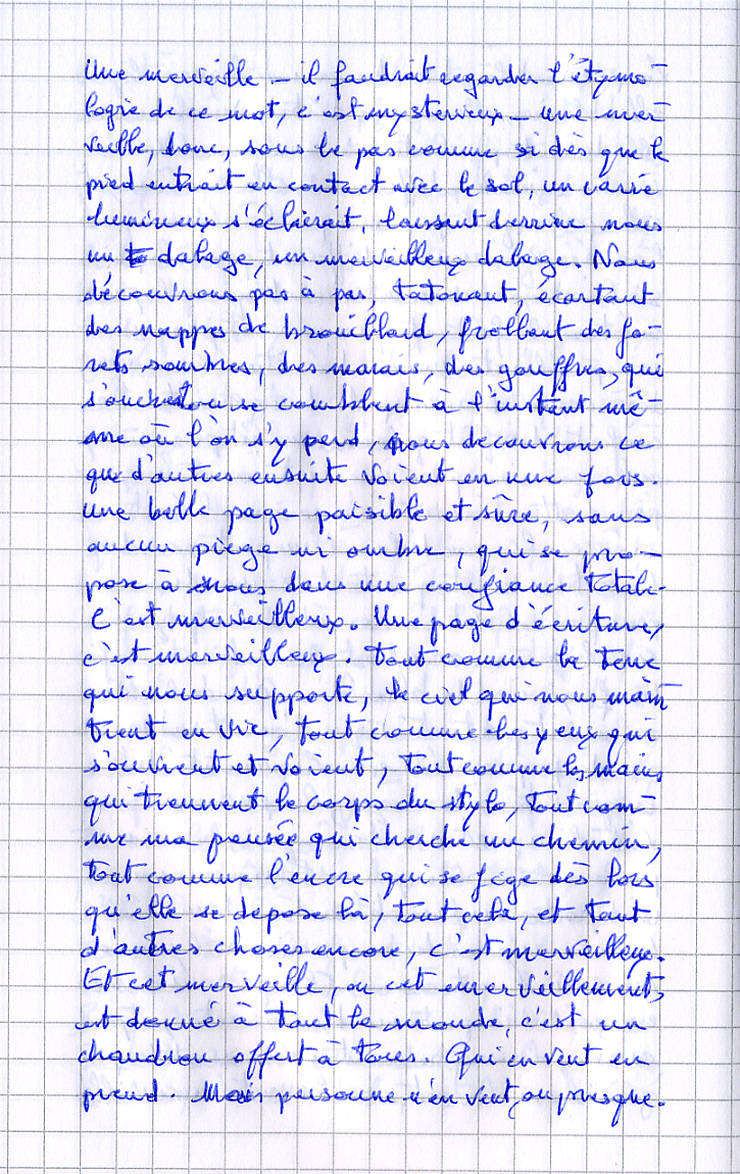 Une merveille – il faudrait regarder l'étymo-
logie de ce mot, c'est mystérieux – une mer-
veille, donc, sous le pas comme si dès que le
pied entrait en contact avec le sol, un carré
lumineux s'éclairait, laissant derrière nous
un dalage, un merveilleux dalage. Nous
découvrons pas à pas, tatonant, écartant
des nappes de brouillard, frollant des fo-
rets sombres, des marais, des gouffres, qui
ou se comblent à l'instant mê-
me où l'on s'y perd, nous decouvrons ce
que d'autres ensuite voient en une fois.
Une belle page paisible et sûre, sans
aucun piège ni ombre, qui se pro-
pose à nous dans une confiance totale.
C'est merveilleux. Une page d'écriture,
c'est merveilleux. Tout comme la terre
qui nous supporte, le ciel qui nous main-
tient en vie, tout comme les yeux qui
s'ouvrent et voient, tout comme les mains
qui tiennent le corps du stylo, tout com-
me ma pensée qui cherche un chemin,
tout comme l'encre qui se fige dès lors
qu'elle se depose là, tout cela, et tant
d'autres choses encore, c'est merveilleux.
Et cet merveille, ou cet emerveillement,
est donné à tout le monde, c'est un
chaudron offert à tous. Qui en veut en
prend. Mais personne n'en veut, ou presque.